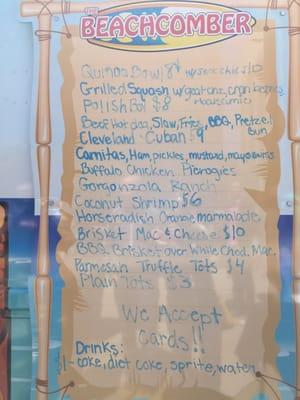 THE
BEACHCOMBER
Quinoa Bowl 8 w/
Grilled Squash w/goat chz, cran berries
Polish Boi $8
Beef Hot dog, Slaw, Fries, BBQ, Pretzel
Bun
Cleveland Cuban $9
Carnitas, Ham, pickles, mustard, mayo, swiss
Buffalo Chicken Pierogies
Gorgonzola Ranch
Coconut Shrimp $6
Horseradish Orange marmalade
Brisket Mac & Cheese $10
BBQ Brisket over White Ched. Mac.
Parmesan Truffle Tots $4
Plain Tots $3
We Accept
Cards!!
Drinks:
$1- coke, diet coke, sprite, water